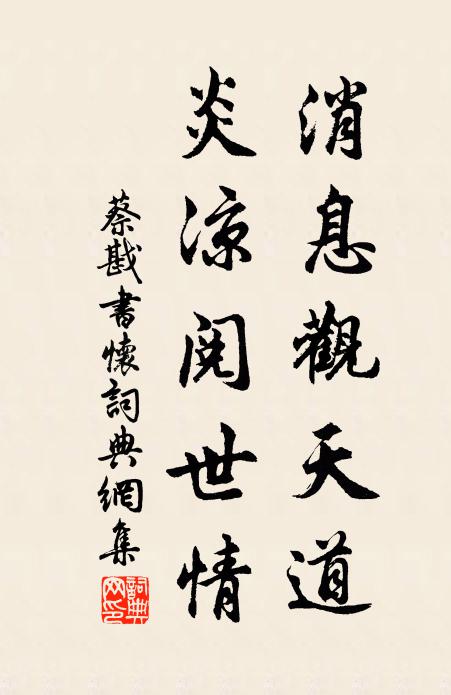 消息觀天道
炎涼閱世情
蔡戡書懷詞典網集
詞典網印